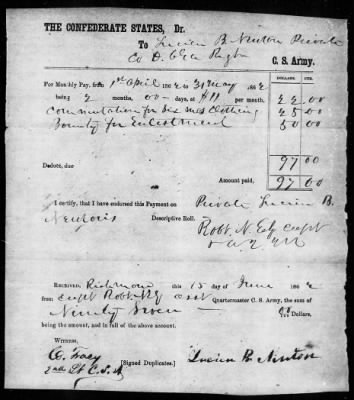 THE CONFEDERATE STATES, Dr.
To Lucien B. Newton Private
Co D.
C. S. Army.
DOLLARS. CTS.
For Monthly Pay, from 1st April 1862 to 31 May 1862
being 2 months, 00 days, at $11 22 00
commutation for Six mos Clothing 25 00
Bounty for Enlistment 50 00
97 00
Deduct, due
Amount paid, 97 00
I certify, that I have endorsed this Payment on Private Lucien B.
Newton's Descriptive Roll.
Robt. N. capt
RECEIVED, Richmond this 15 day of June 1862
from capt Robt. N. asst Quartermaster C. S. Army, the sum of
Ninety Seven Dollars,
being the amount, and in full of the above account.
WITNESS,
[Signed Duplicates.] Lucien B. Newton
2nd Lt C.S.A